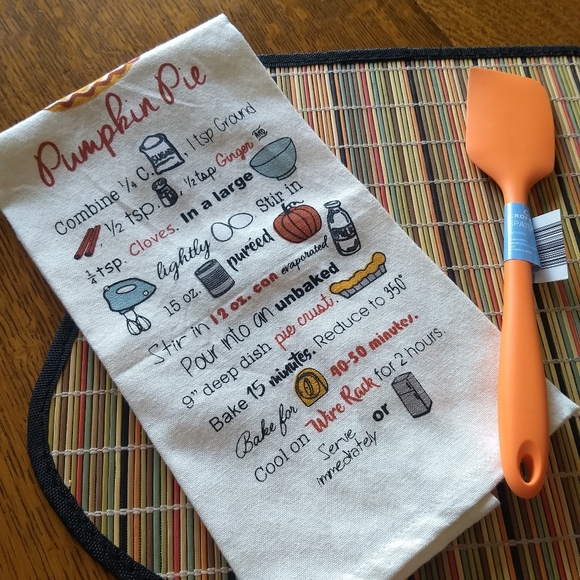 Pumpkin Pie
Combine ¼ C. SUGAR, 1 tsp Ground
, ½ tsp. , ½ tsp Ginger
¼ tsp. Cloves. In a large
lightly Stir in
15 oz. pureed
Stir in 12 oz. can evaporated MILK
Pour into an unbaked
9" deep dish pie crust.
Bake 15 minutes. Reduce to 350°
Bake for 40-50 minutes.
Cool on Wire Rack for 2 hours.
Serve immediately or